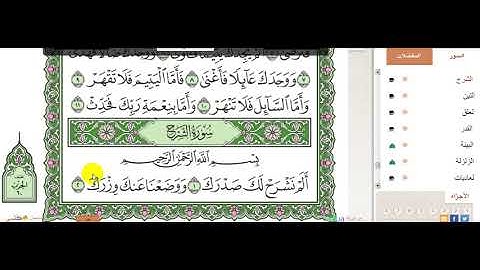 وَوَجَدَكَ عَآئِلًا فَأَغْنَىٰ ٨ فَأَمَّا ٱلْيَتِيمَ فَلَا تَقْهَرْ ٩
وَأَمَّا ٱلسَّآئِلَ فَلَا تَنْهَرْ ١٠ وَأَمَّا بِنِعْمَةِ رَبِّكَ فَحَدِّثْ ١١
سُورَةُ الشَّرْحِ
بِسْمِ ٱللَّهِ ٱلرَّحْمَٰنِ ٱلرَّحِيمِ
أَلَمْ نَشْرَحْ لَكَ صَدْرَكَ ١ وَوَضَعْنَا عَنكَ وِزْرَكَ ٢
الحزب
٦٠
السور
المفضلات
الشرح
التين
العلق
القدر
البينة
الزلزلة
العاديات
الأجزاء